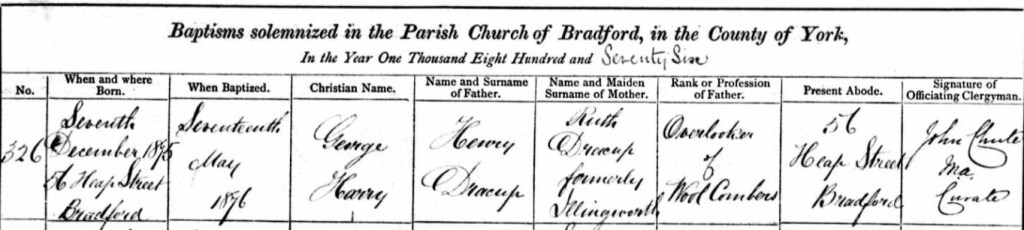 Baptisms solemnized in the Parish Church of Bradford, in the County of York,
In the Year One Thousand Eight Hundred and Seventy Six
No.
When and where
Born.
When Baptized.
Christian Name.
Name and Surname
of Father.
Name and Maiden
Surname of Mother.
Rank or Profession
of Father.
Present Abode.
Signature of
Officiating Clergyman.
326
Seventh
December 1875
56 Heap Street
Bradford
Seventeenth
May
1876
George
Harry
Henry
Dracup
Ruth
Dracup
formerly
Illingworth
Overlooker
of
Wool Combers
56
Heap Street
Bradford
John Chute
Ma.
Curate